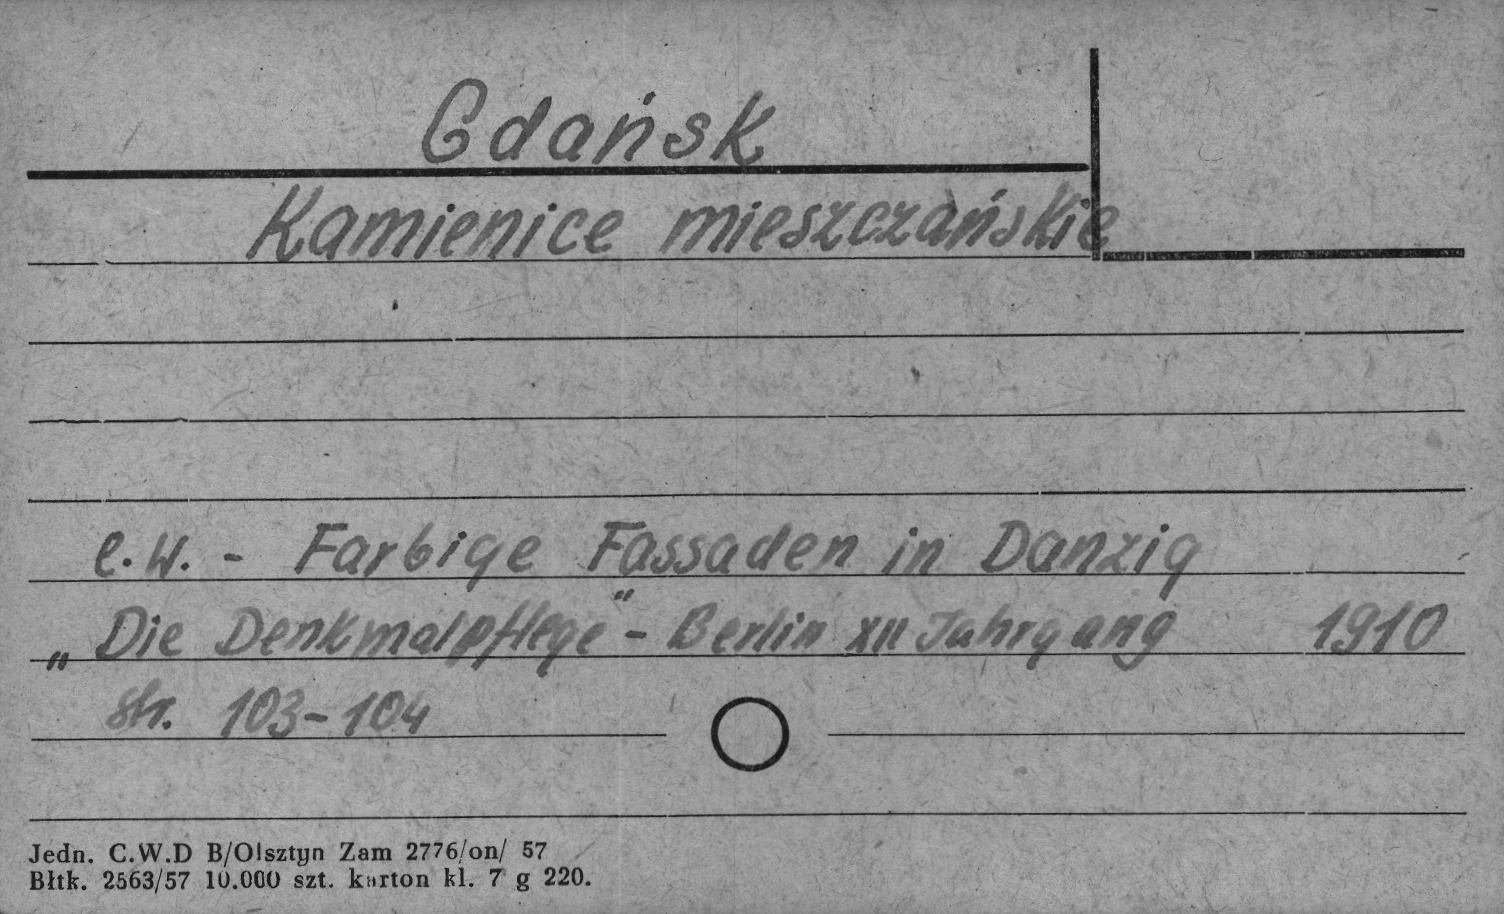 Gdańsk
Kamienice mieszczańskie
C.W. - Farbige Fassaden in Danzig
„Die Denkmalpflege" - Berlin XII Jahrgang 1910
str. 103-104
Jedn. C.W.D B/Olsztyn Zam 2776/on/ 57
Błtk. 2563/57 10.000 szt. karton kl. 7 g 220.